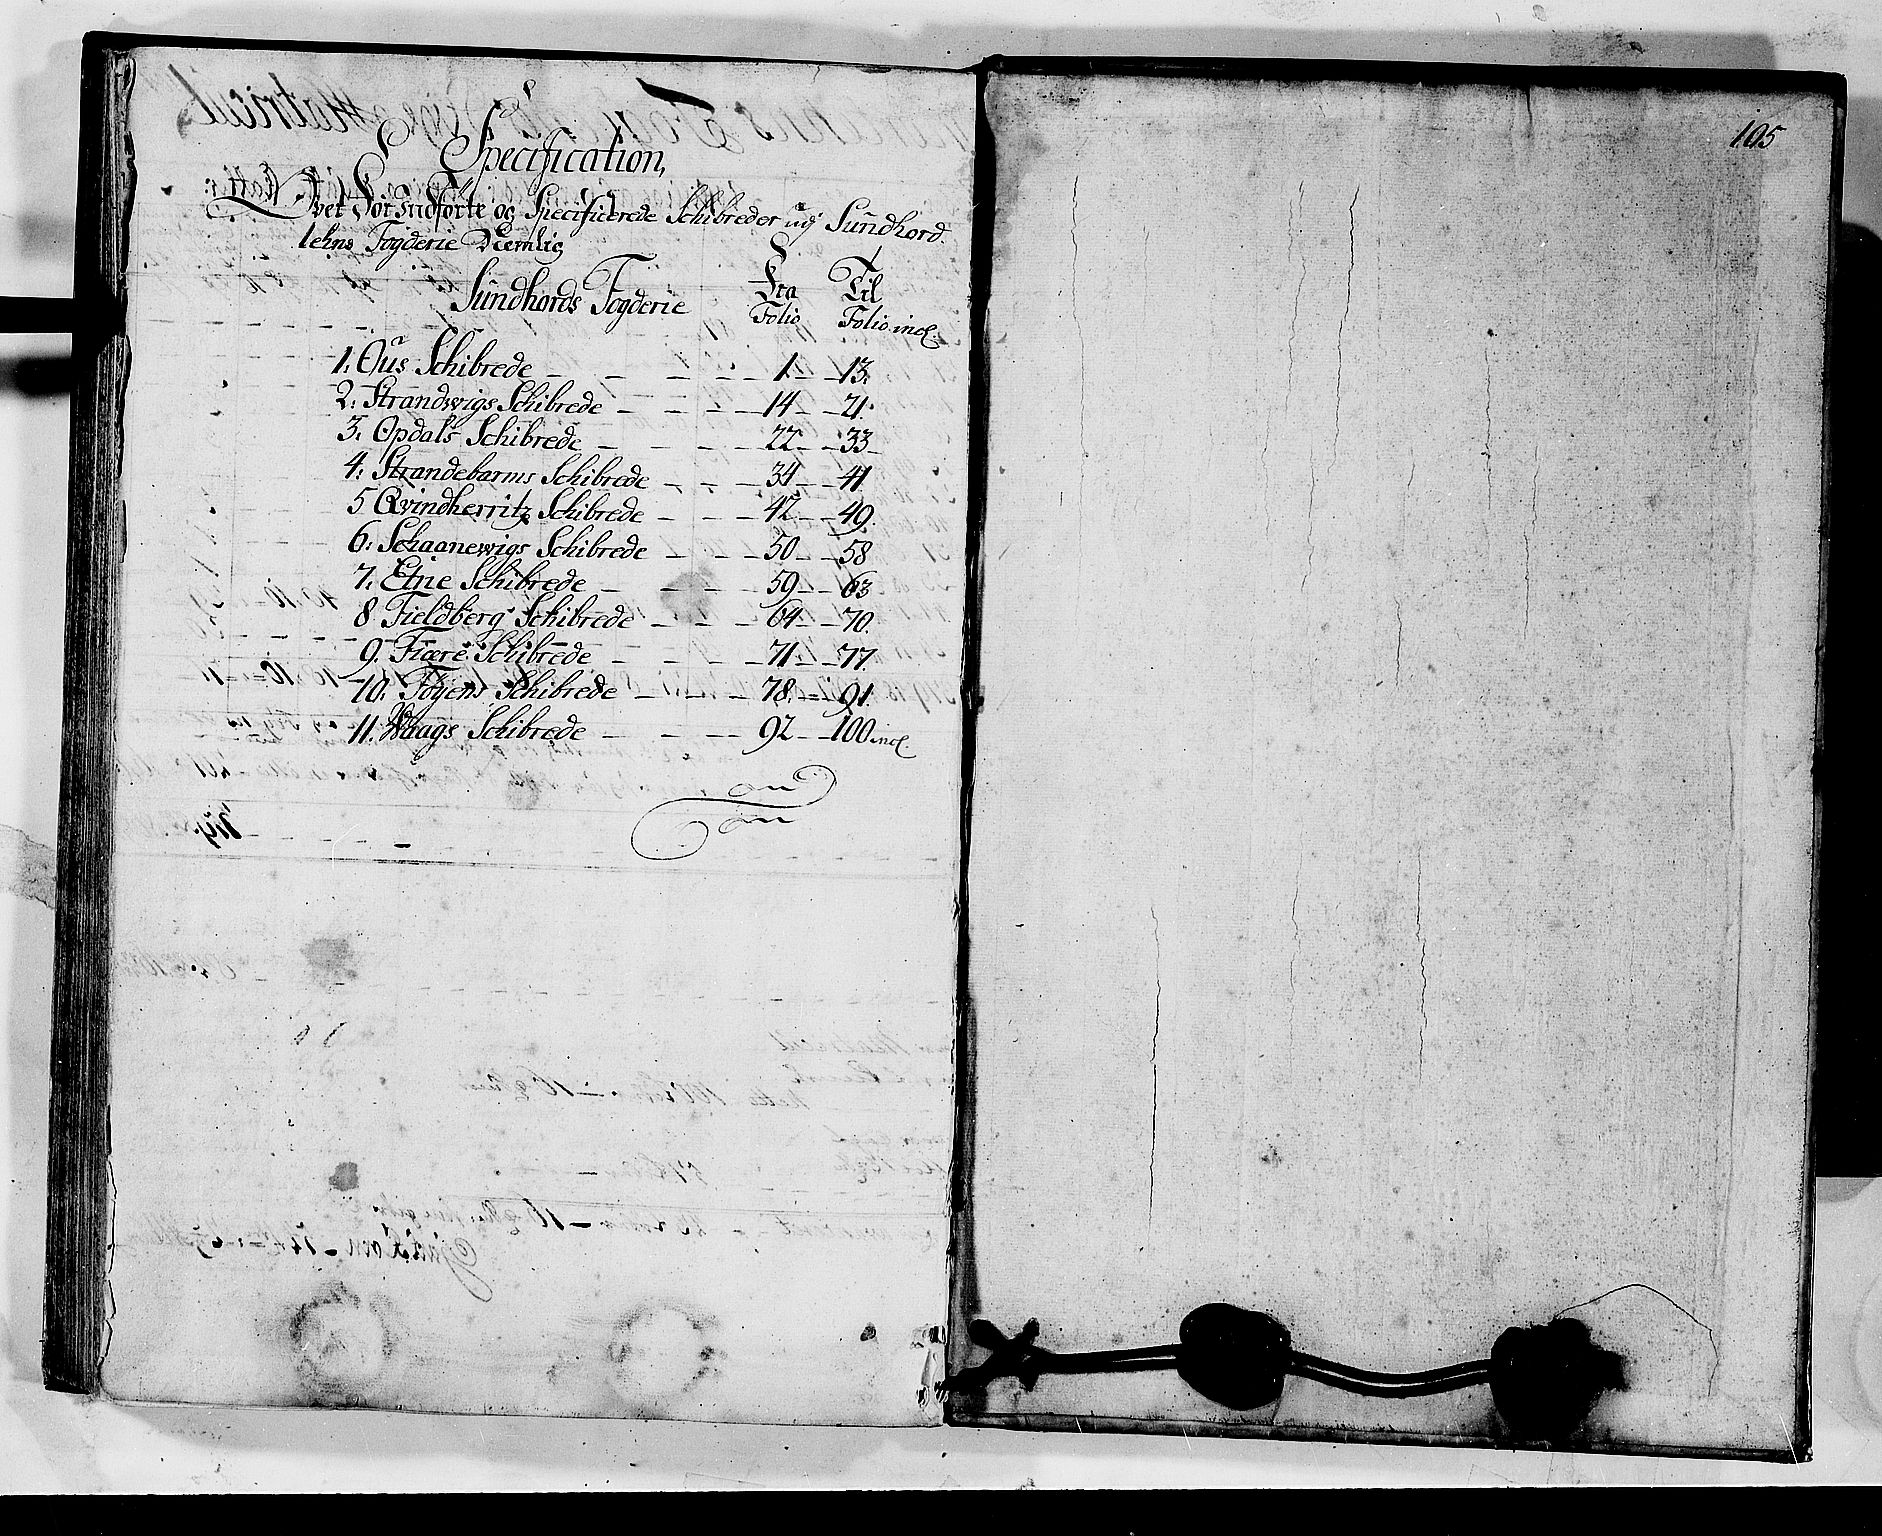 Specification,
Over Før Indførte og Specificerede Schibreder udj Sundhord-
lehns Fogderie Nemlig
Sundhords Fogderie Fra Folio Til Folio incl:
1. Ous Schibrede 1 13.
2: Strandwigs Schibrede 14 21.
3. Opdals Schibrede 22 33
4: Strandebarms Schibrede 34 41
5 Qvindherritz Schibrede 42 49.
6: Schaanewigs Schibrede 50 58
7. Etne Schibrede 59 63
8. Fieldberg Schibrede 64 70.
9. Fiære Schibrede 71 77.
10. Føyens Schibrede 78. 91.
11. Waags Schibrede 92 100 incl.
105